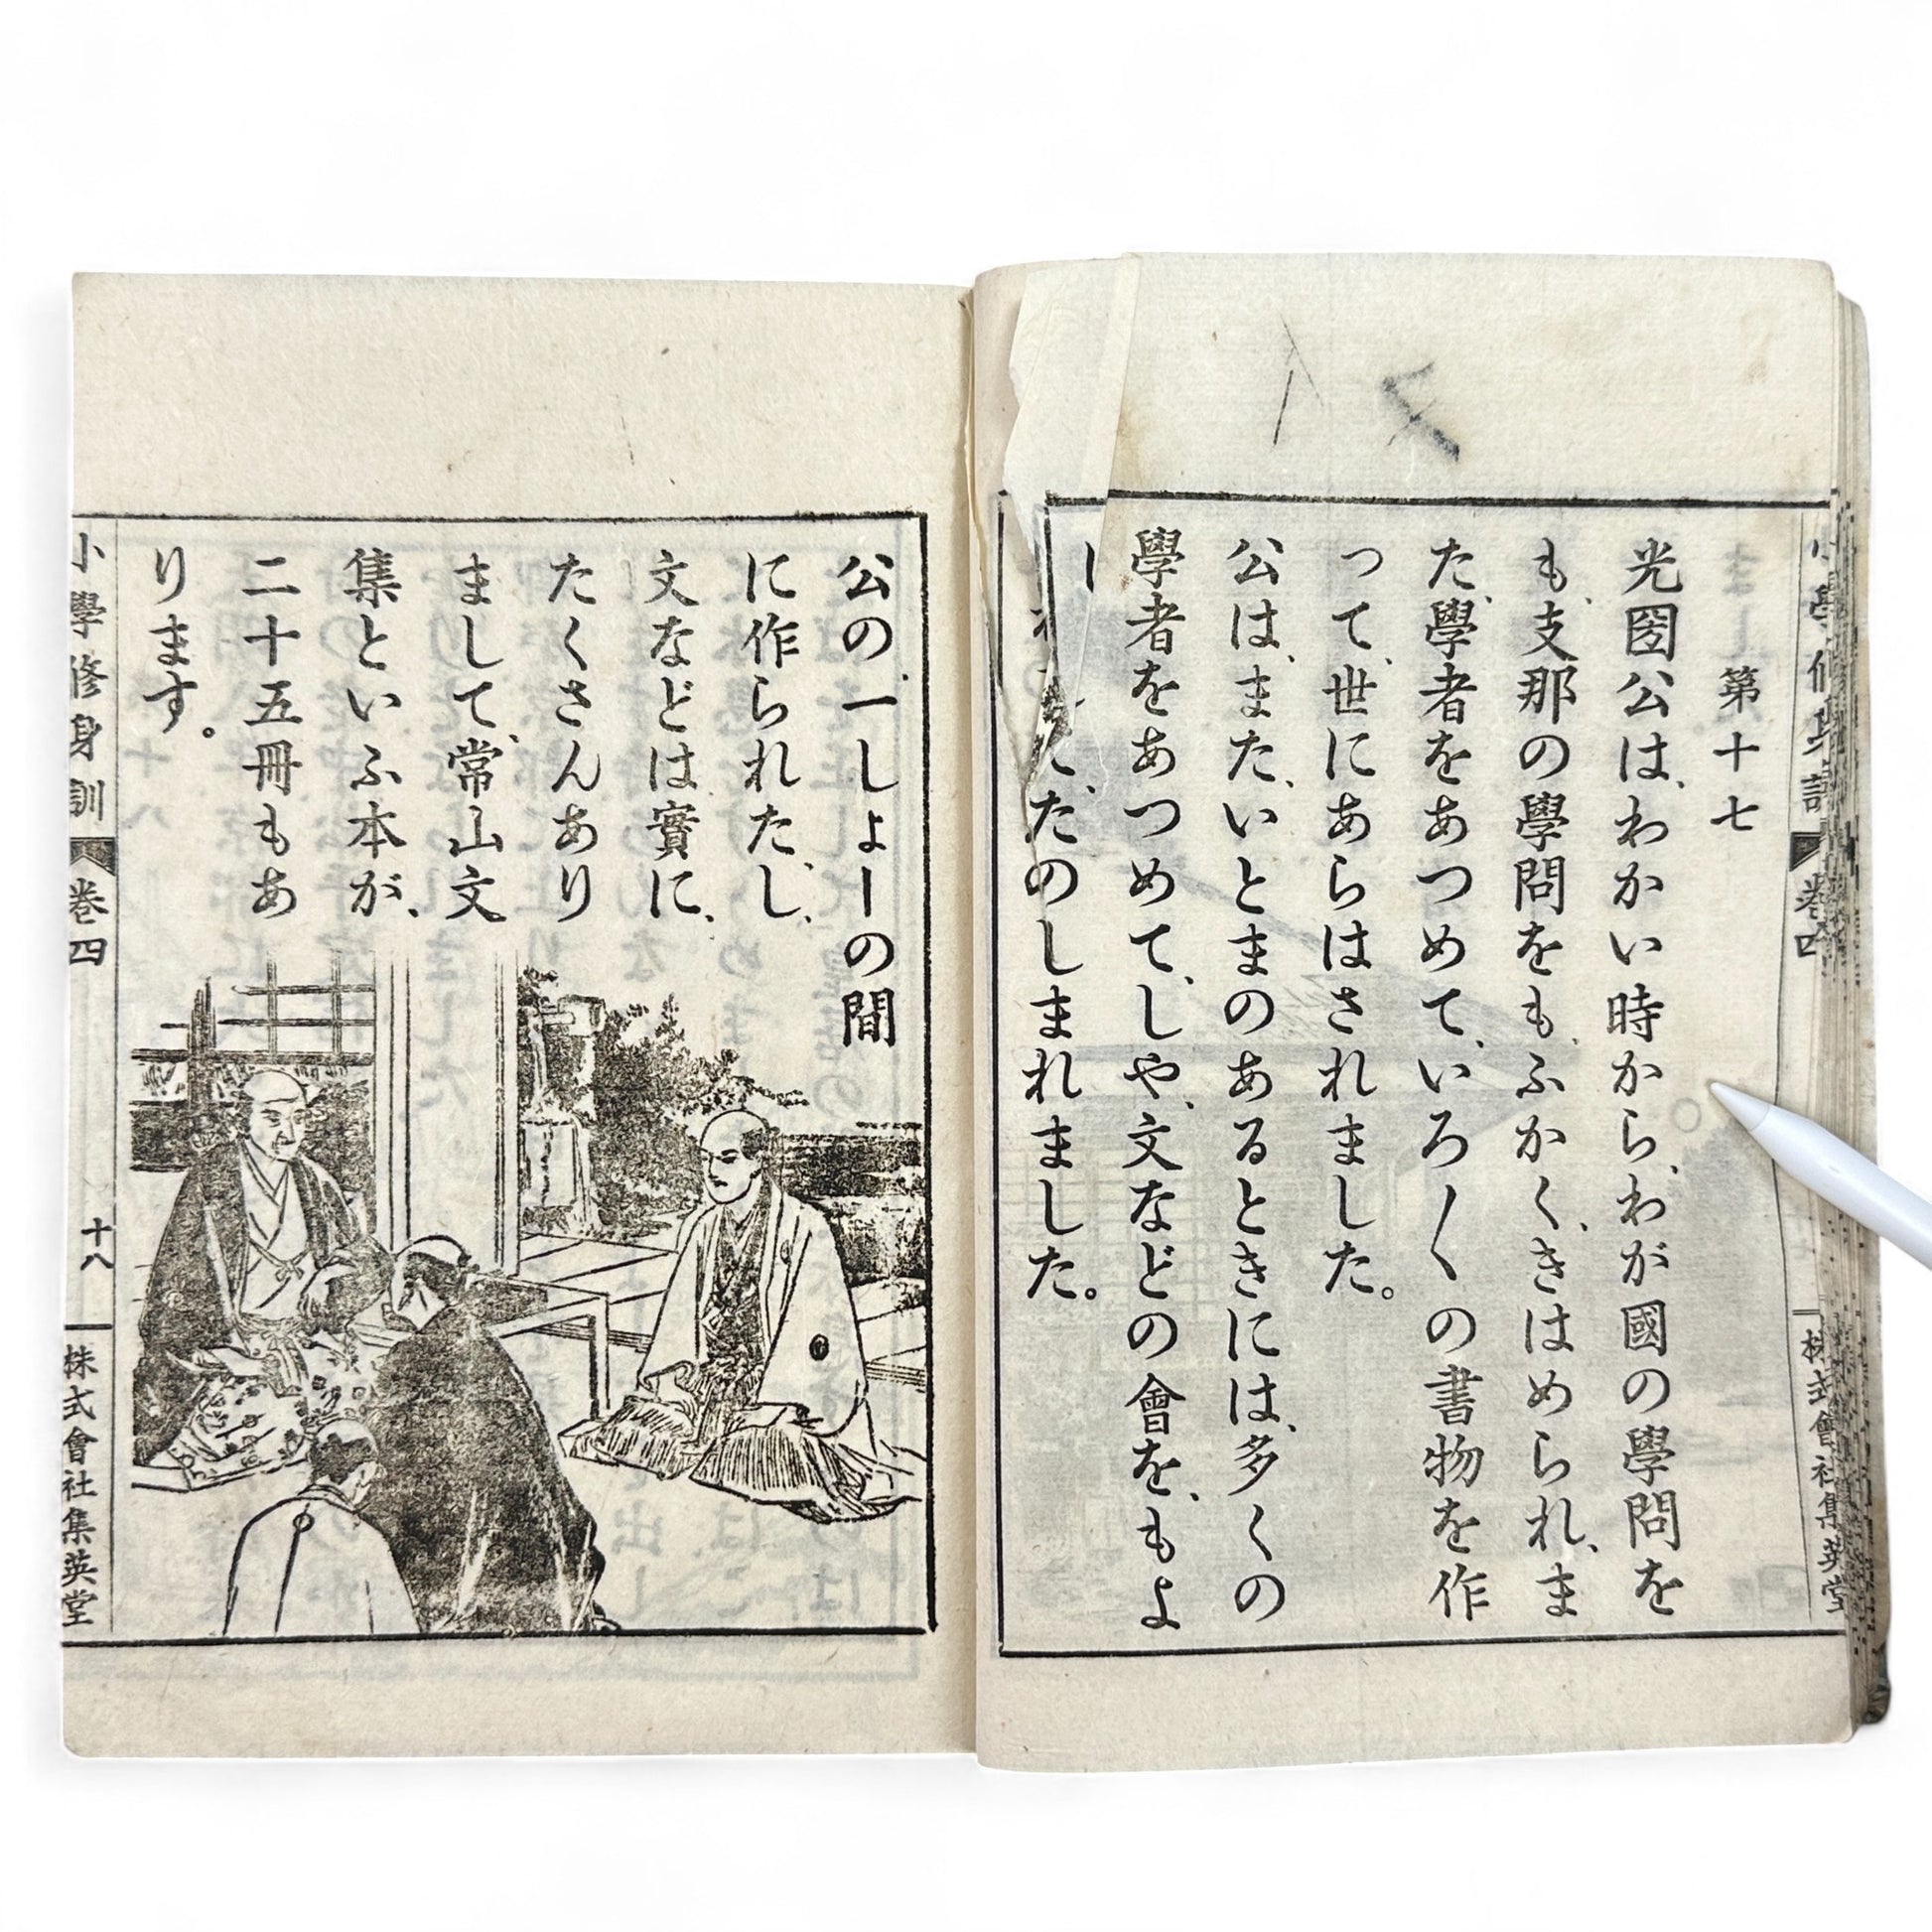 小學修身訓 卷四 株式會社集英堂
第十七
光圀公は、わかい時から、わが國の學問を
も、支那の學問をもふかく、きはめられ、ま
た、學者をあつめて、いろ〳〵の書物を作
って、世にあらはされました。
公は、また、いとまのあるときには、多くの
學者をあつめて、しや、文などの會を、もよ
たのしまれました。
公の、一しょーの間
に作られた、し、
文などは實に、
たくさんあり
まして、常山文
集といふ本が、
二十五冊もあ
ります。
小學修身訓 卷四 十八 株式會社集英堂